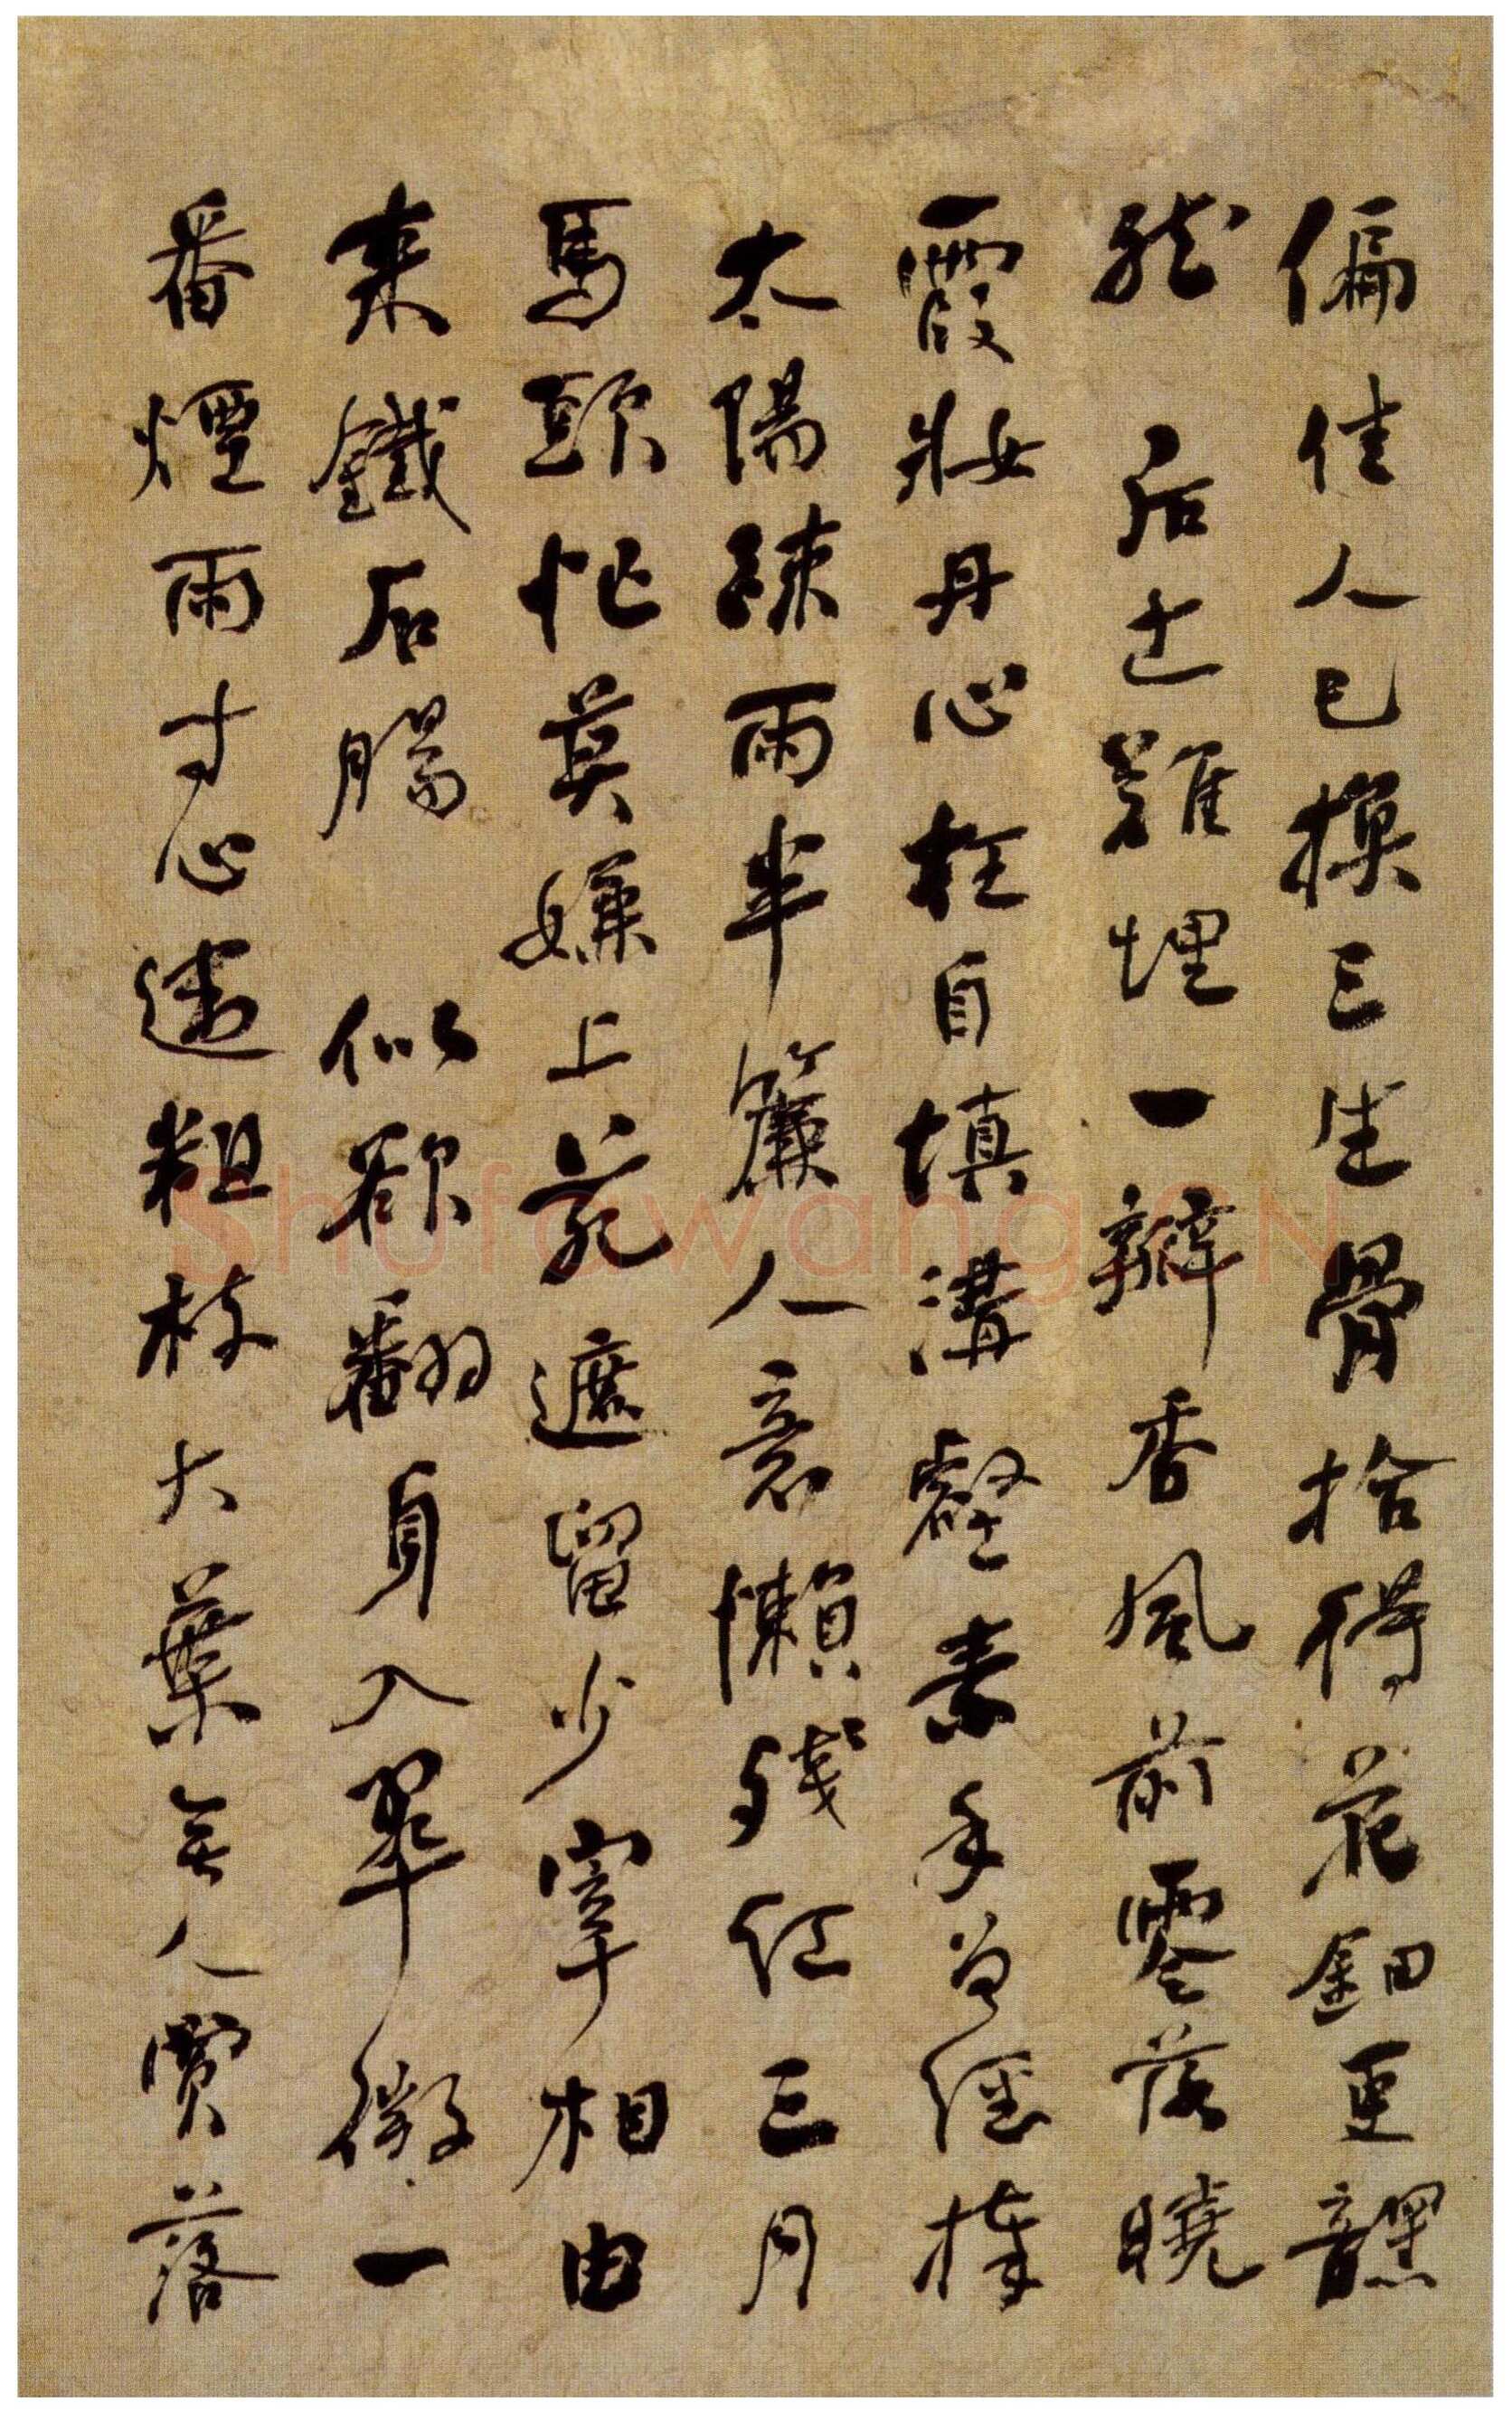 偏佳人已換三生骨拾得花鈿更黯
然 后土難埋一瓣香風前零落曉
霞妝丹心枉自填溝壑素手曾經捧
太陽疎雨半簾人意懶殘紅三月
馬頭忙莫嫌上苑遮留少宰相由
來鐵石腸 似欲翻身入翠微一
番煙雨寸心違粗枝大葉無人買落
Shufawang.CN